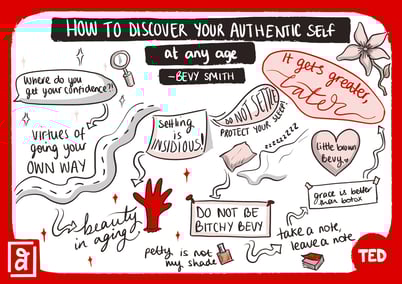 HOW TO DISCOVER YOUR AUTHENTIC SELF
at any age
~BEVY SMITH
Where do you
get your confidence?!
It gets greater,
later
Virtues of
going your
OWN WAY
Settling
is
INSIDIOUS!
DO NOT SETTLE
PROTECT YOUR SLEEP!
zzzzzzzz
little brown
bevy
grace is better
than botox
beauty
in aging
DO NOT BE
BITCHY BEVY
petty is not
my shade
take a note,
leave a note
TED